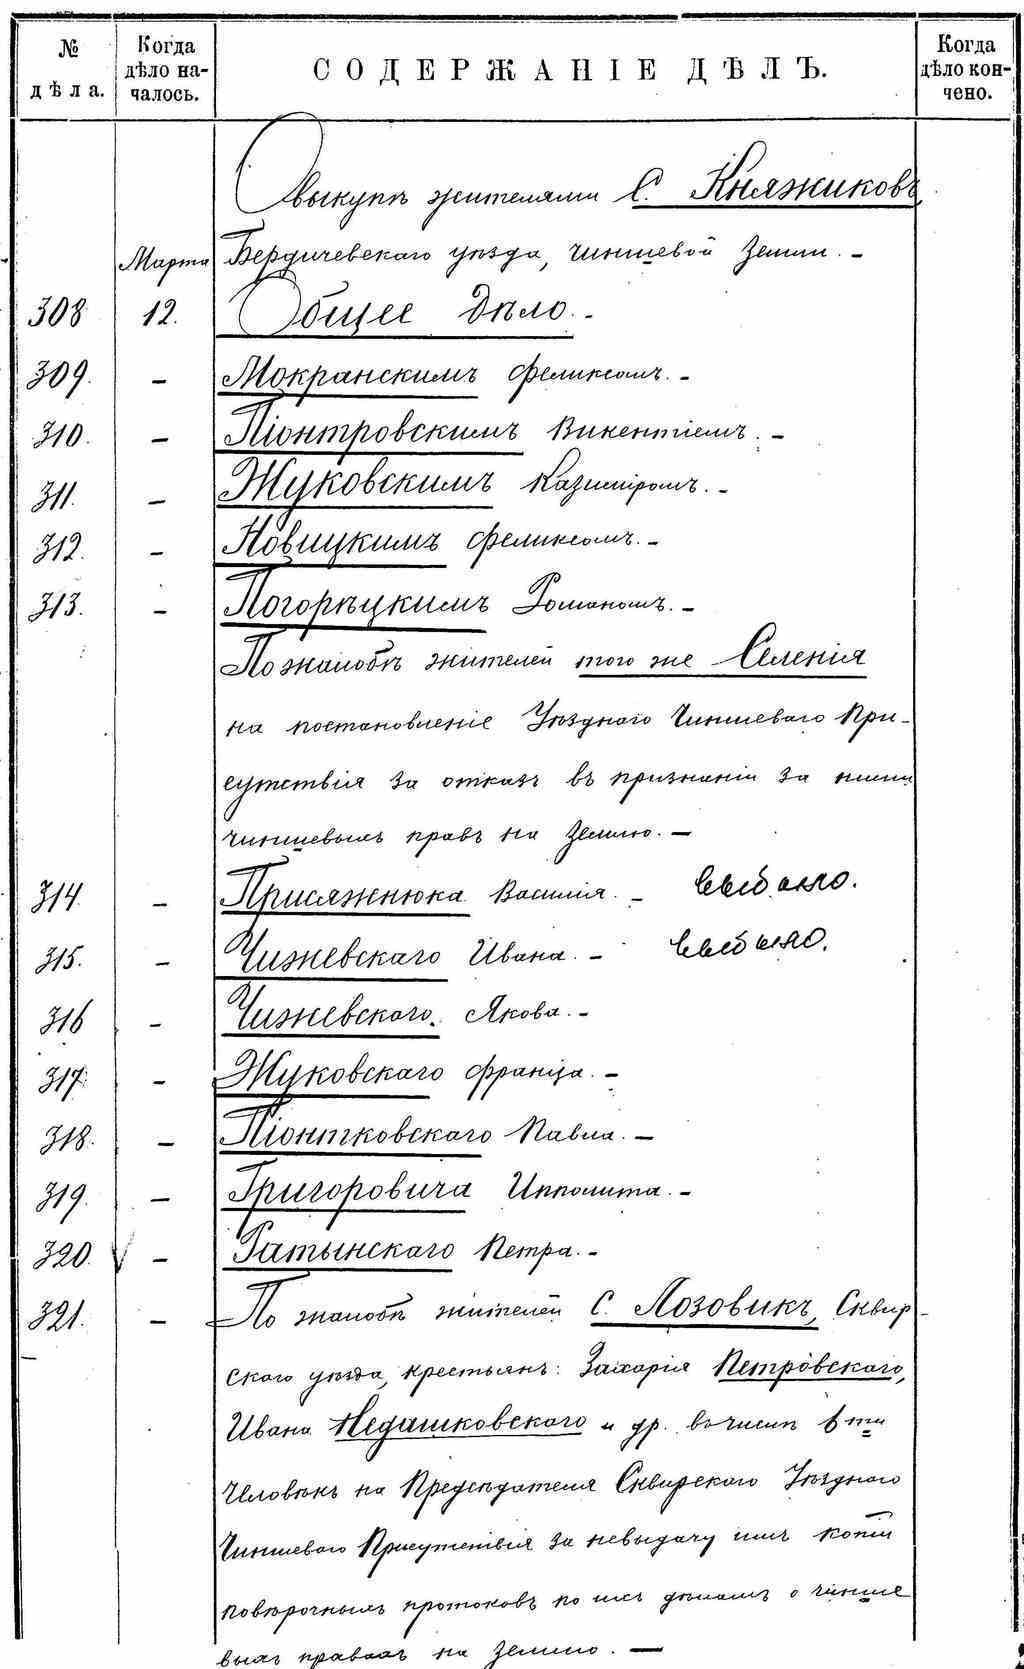 № дѣла. Когда дѣло началось. СОДЕРЖАНІЕ ДѢЛЪ. Когда дѣло кончено.
О выкупѣ жителями С. Княжиковъ,
Марта Бердичевскаго уѣзда, чиншевой земли. –
308 12. Общее Дѣло. –
309. – Мокранскимъ Феликсомъ. –
310. – Піонтровскимъ Викентіемъ. –
311. – Жуковскимъ Казиміромъ. –
312. – Новицкимъ Феликсомъ. –
313. – Погорѣцкимъ Романомъ. –
По жалобѣ жителей того же Селенія
на постановленіе Уѣзднаго Чиншеваго При-
сутствія за отказъ въ признаніи за ними
чиншевыхъ правъ на Землю. –
314 – Присяжнюка Василія. – выбыло.
315. – Чижевскаго Ивана. – выбыло.
316 – Чижевскаго. Якова. –
317. – Жуковскаго Франца. –
318. – Піонтковскаго Павла. –
319. – Григоровича Ипполита. –
320. – Ратынскаго Петра. –
321. – По жалобѣ жителей С. Лозовикъ, Сквир-
скаго уѣзда, крестьянъ: Захарія Петровскаго,
Ивана Недашковскаго и др. въ числѣ 6ти
Человѣкъ на Предсѣдателя Сквирскаго Уѣзднаго
Чиншеваго Присутствія за невыдачу имъ копіи
повѣрочныхъ протоковъ по ихъ дѣламъ о чинше
выхъ правахъ на Землю. –